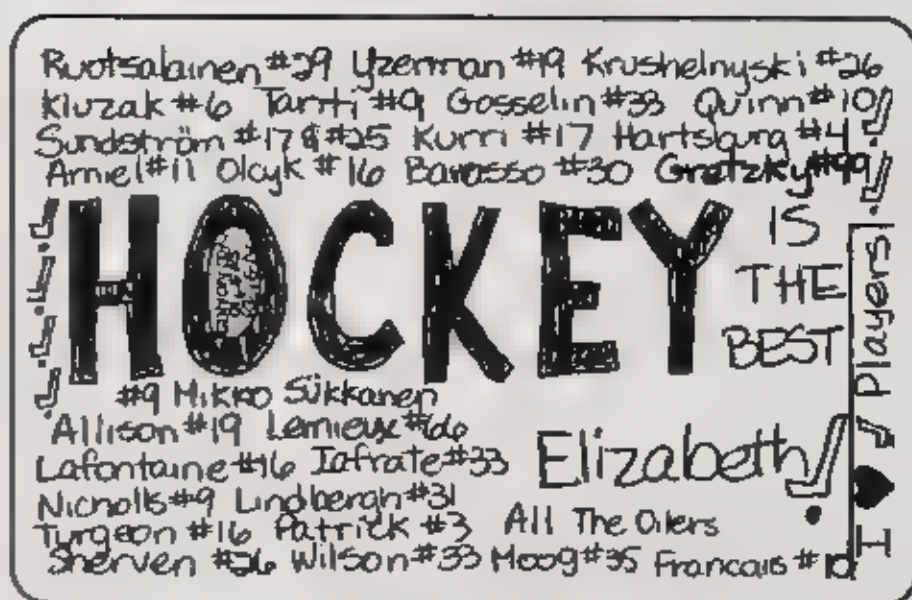 Ruotsalainen #29 Yzerman #19 Krushelnyski #26
Kluzak #6 Tanti #9 Gosselin #33 Quinn #10
Sundström #17 & #25 Kurri #17 Hartsburg #4
Arniel #11 Olcyk #16 Barasso #30 Gretzky #99
HOCKEY
IS
THE
BEST
#9 Mikko Sükkanen
Allison #19 Lemieux #66
Lafontaine #16 Iafrate #33
Nicholls #9 Lindbergh #31
Turgeon #16 Patrick #3
Sherven #26 Wilson #33 Moog #35 Francais #10
Elizabeth
All The Oilers
I ♥ Players